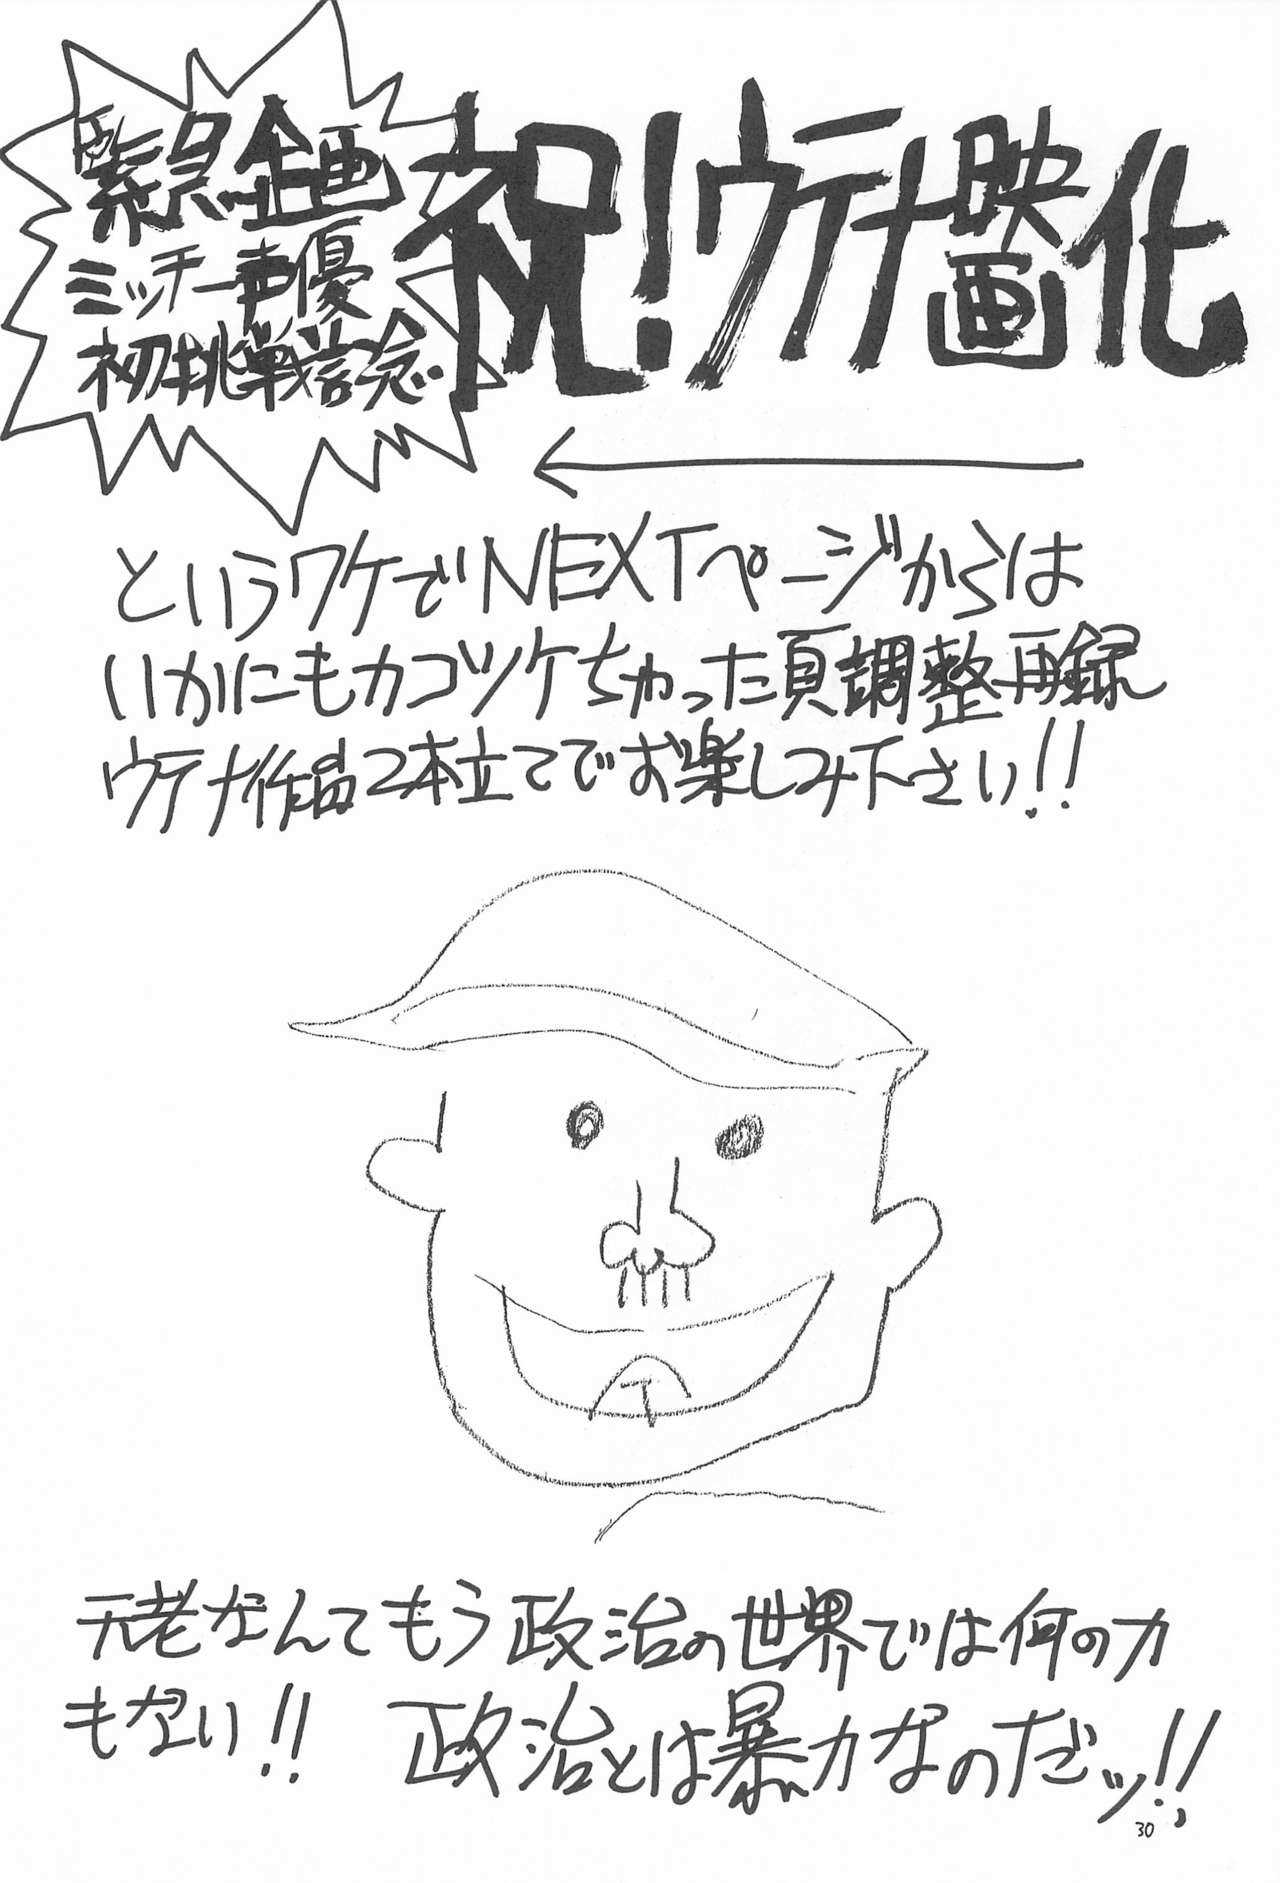 緊急企画
ミッチー声優
初挑戦記念
祝!ウテナ映画化
というワケでNEXTページからは
いかにもカコツケちゃった頁調整再録
ウテナ作品2本立てでお楽しみ下さい!!
T
元老なんてもう政治の世界では何の力
もない!! 政治とは暴力なのだッ!!
30